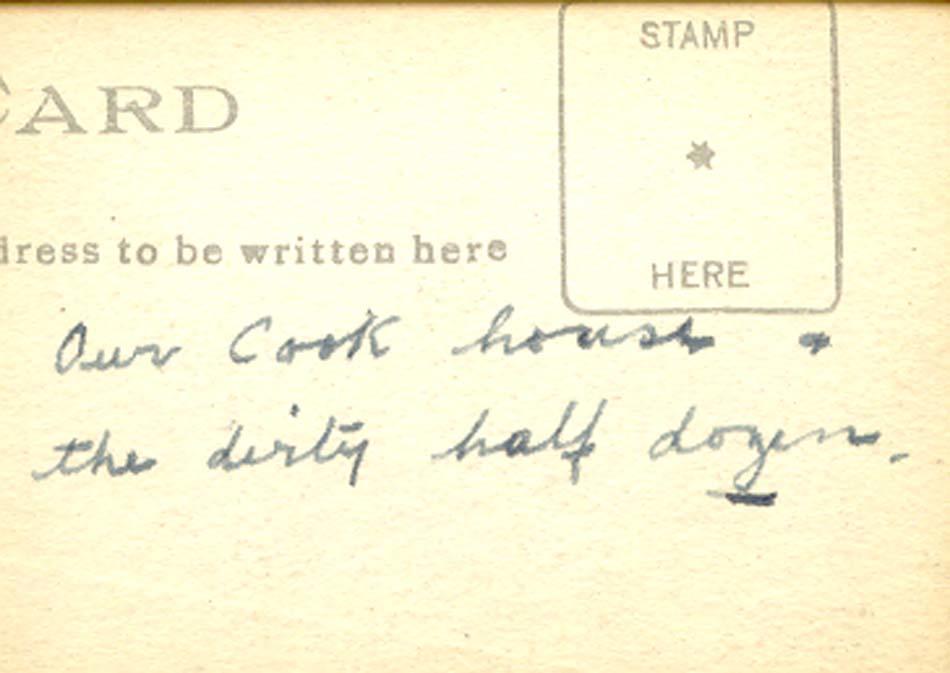 STAMP
CARD
dress to be written here
HERE
Our Cook house &
the dirty half dozen.